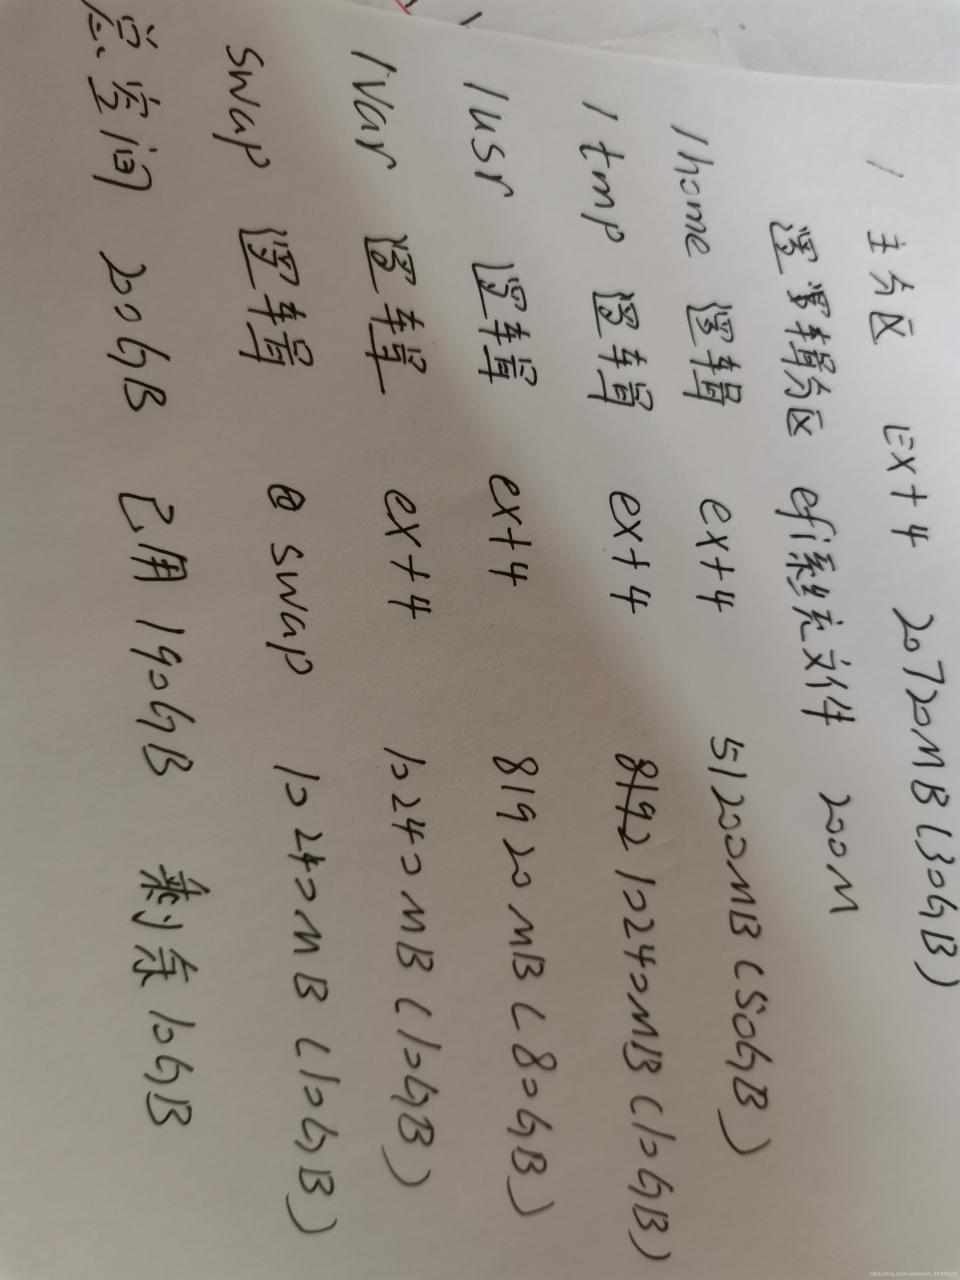 / 主分区 Ext4 20720MB(30GB)
逻辑分区 efi系统文件 200M
/home 逻辑 ext4 51200MB(50GB)
/tmp 逻辑 ext4 10240MB(10GB)
/usr 逻辑 ext4 81920MB(80GB)
/var 逻辑 ext4 10240MB(10GB)
swap 逻辑 swap 10240MB(10GB)
总空间 200GB 已用 190GB 剩余 10GB